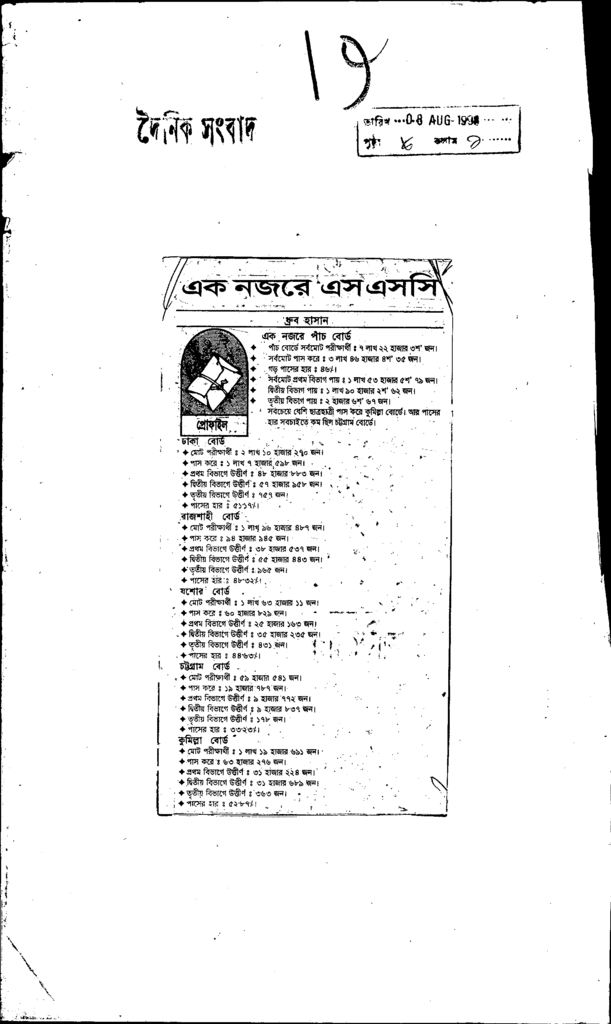 ১৭
দৈনিক সংবাদ
তারিখ ... 08 AUG 1998 ... ...
পৃষ্ঠা ... কলাম ... ......
এক নজরে এসএসসি
ধ্রুব হাসান
এক নজরে পাঁচ বোর্ড
✦ পাঁচ বোর্ডে সর্বমোট পরীক্ষার্থী : ৭ লাখ ২২ হাজার ৩শ' জন।
✦ সর্বমোট পাস করে : ৩ লাখ ৪৬ হাজার ৪শ' ৩৫ জন।
✦ গড় পাসের হার : ৪৬%।
✦ সর্বমোট প্রথম বিভাগ পায় : ১ লাখ ৫৩ হাজার ৫শ' ৭৯ জন।
✦ দ্বিতীয় বিভাগ পায় : ১ লাখ ৯০ হাজার ২শ' ৬২ জন।
✦ তৃতীয় বিভাগ পায় : ২ হাজার ৬শ' ৬৭ জন।
✦ সবচেয়ে বেশি ছাত্রছাত্রী পাস করে কুমিল্লা বোর্ডে। আর পাসের
হার সবচাইতে কম ছিল চট্টগ্রাম বোর্ডে।
প্রোফাইল
ঢাকা বোর্ড
✦ মোট পরীক্ষার্থী : ২ লাখ ১০ হাজার ২৭০ জন।
✦ পাস করে : ১ লাখ ৭ হাজার ৫৯৮ জন।
✦ প্রথম বিভাগে উত্তীর্ণ : ৪৮ হাজার ৮৮৩ জন।
✦ দ্বিতীয় বিভাগে উত্তীর্ণ : ৫৭ হাজার ৯৫৮ জন।
✦ তৃতীয় বিভাগে উত্তীর্ণ : ৭৫৭ জন।
✦ পাসের হার : ৫১.১৭%।
রাজশাহী বোর্ড
✦ মোট পরীক্ষার্থী : ১ লাখ ৯৬ হাজার ৪৮৭ জন।
✦ পাস করে : ৯৪ হাজার ৯৪৫ জন।
✦ প্রথম বিভাগে উত্তীর্ণ : ৩৮ হাজার ৫৩৭ জন।
✦ দ্বিতীয় বিভাগে উত্তীর্ণ : ৫৫ হাজার ৪৪৩ জন।
✦ তৃতীয় বিভাগে উত্তীর্ণ : ৯৬৫ জন।
✦ পাসের হার : ৪৮.৩২%।
যশোর বোর্ড
✦ মোট পরীক্ষার্থী : ১ লাখ ৬৩ হাজার ১১ জন।
✦ পাস করে : ৬০ হাজার ৮২৯ জন।
✦ প্রথম বিভাগে উত্তীর্ণ : ২৫ হাজার ১৬৩ জন।
✦ দ্বিতীয় বিভাগে উত্তীর্ণ : ৩৫ হাজার ২৩৫ জন।
✦ তৃতীয় বিভাগে উত্তীর্ণ : ৪৩১ জন।
✦ পাসের হার : ৪৪.৬৩%।
চট্টগ্রাম বোর্ড
✦ মোট পরীক্ষার্থী : ৫৯ হাজার ৫৪১ জন।
✦ পাস করে : ১৯ হাজার ৭৮৭ জন।
✦ প্রথম বিভাগে উত্তীর্ণ : ৯ হাজার ৭৭২ জন।
✦ দ্বিতীয় বিভাগে উত্তীর্ণ : ৯ হাজার ৮৩৭ জন।
✦ তৃতীয় বিভাগে উত্তীর্ণ : ১৭৮ জন।
✦ পাসের হার : ৩৩.২৩%।
কুমিল্লা বোর্ড
✦ মোট পরীক্ষার্থী : ১ লাখ ১৯ হাজার ৬৯১ জন।
✦ পাস করে : ৬৩ হাজার ২৭৬ জন।
✦ প্রথম বিভাগে উত্তীর্ণ : ৩১ হাজার ২২৪ জন।
✦ দ্বিতীয় বিভাগে উত্তীর্ণ : ৩১ হাজার ৬৮৯ জন।
✦ তৃতীয় বিভাগে উত্তীর্ণ : ৩৬৩ জন।
✦ পাসের হার : ৫২.৮৭%।